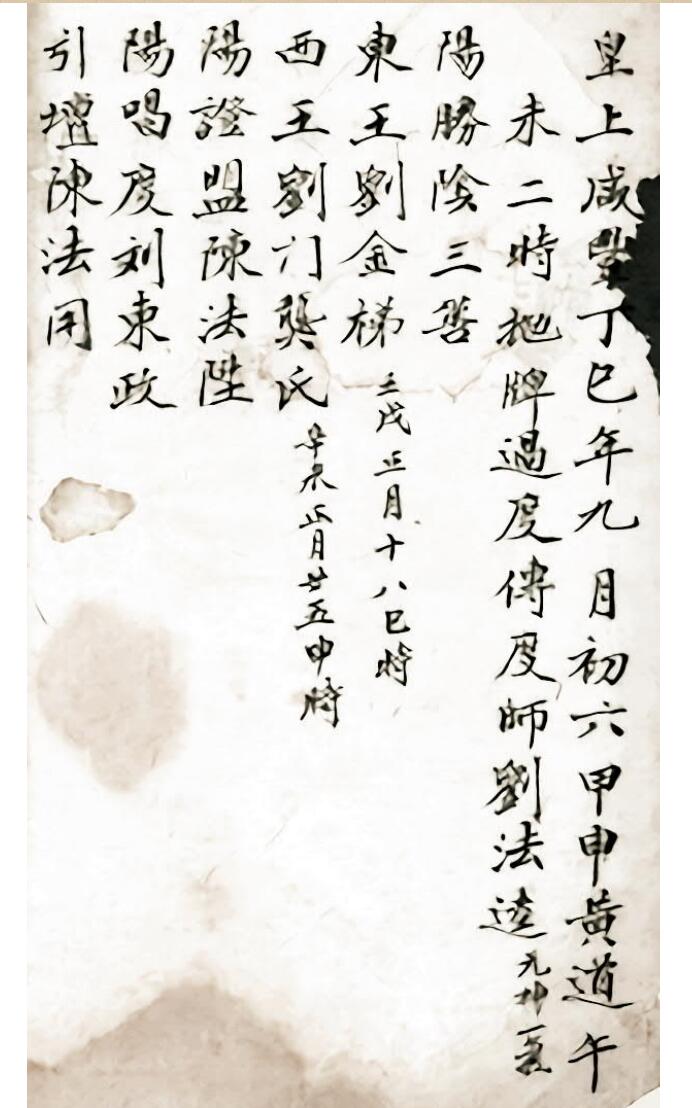 皇上咸豐丁巳年九月初六甲申黃道午
未二時地牌過度傳度師劉法達
陽勝陰三
東王劉金梯 壬戌正月十八巳時
西王劉门龔氏 辛未正月廿五申時
陽證盟陳法陞
陽唱度刘東政
引壇陳法用